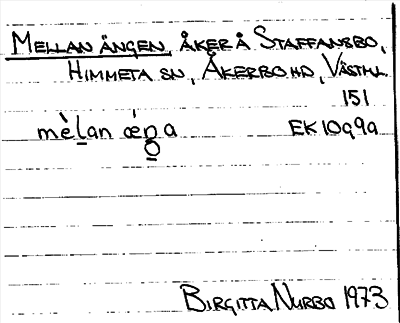 MELLAN ÄNGEN, ÅKER Å STAFFANSBO,
HIMMETA SN, ÅKERBO HD, VÄSTML.
151
mèl̲an ǽŋ̲a EK 10g9a
BIRGITTA NURBO 1973